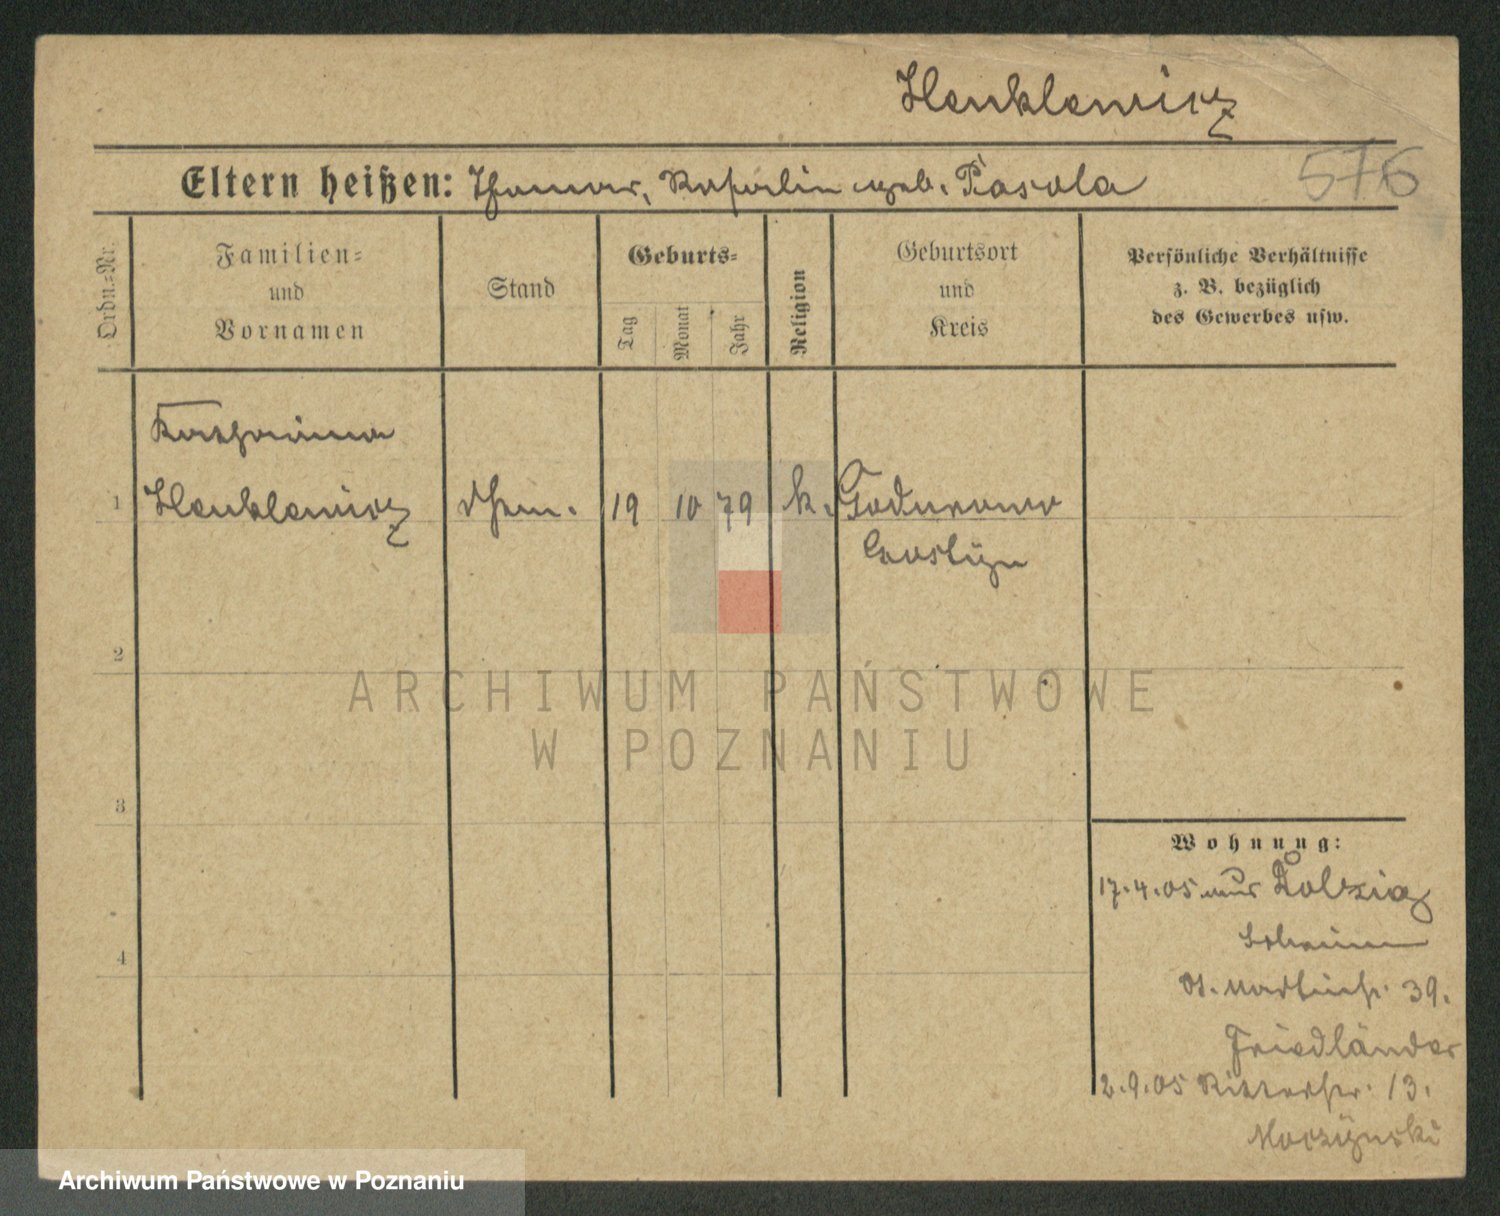 Henklewicz
Eltern heißen: Thomas, Rosalie geb. Pasola
576
Ordn.=Nr.
Familien=
und
Vornamen
Stand
Geburts=
Tag
Monat
Jahr
Religion
Geburtsort
und
Kreis
Persönliche Verhältnisse
z. B. bezüglich
des Gewerbes usw.
Katharina
1 Henklewicz 19 10 79 k. Godurowo
Gostyn
2
3
4
Wohnung:
17.4.05 aus Dolzig
Schrimm
St. Martinstr. 39.
Friedländer
2.9.05 Ritterstr. 13.
Moczynski
ARCHIWUM PAŃSTWOWE
W POZNANIU
Archiwum Państwowe w Poznaniu